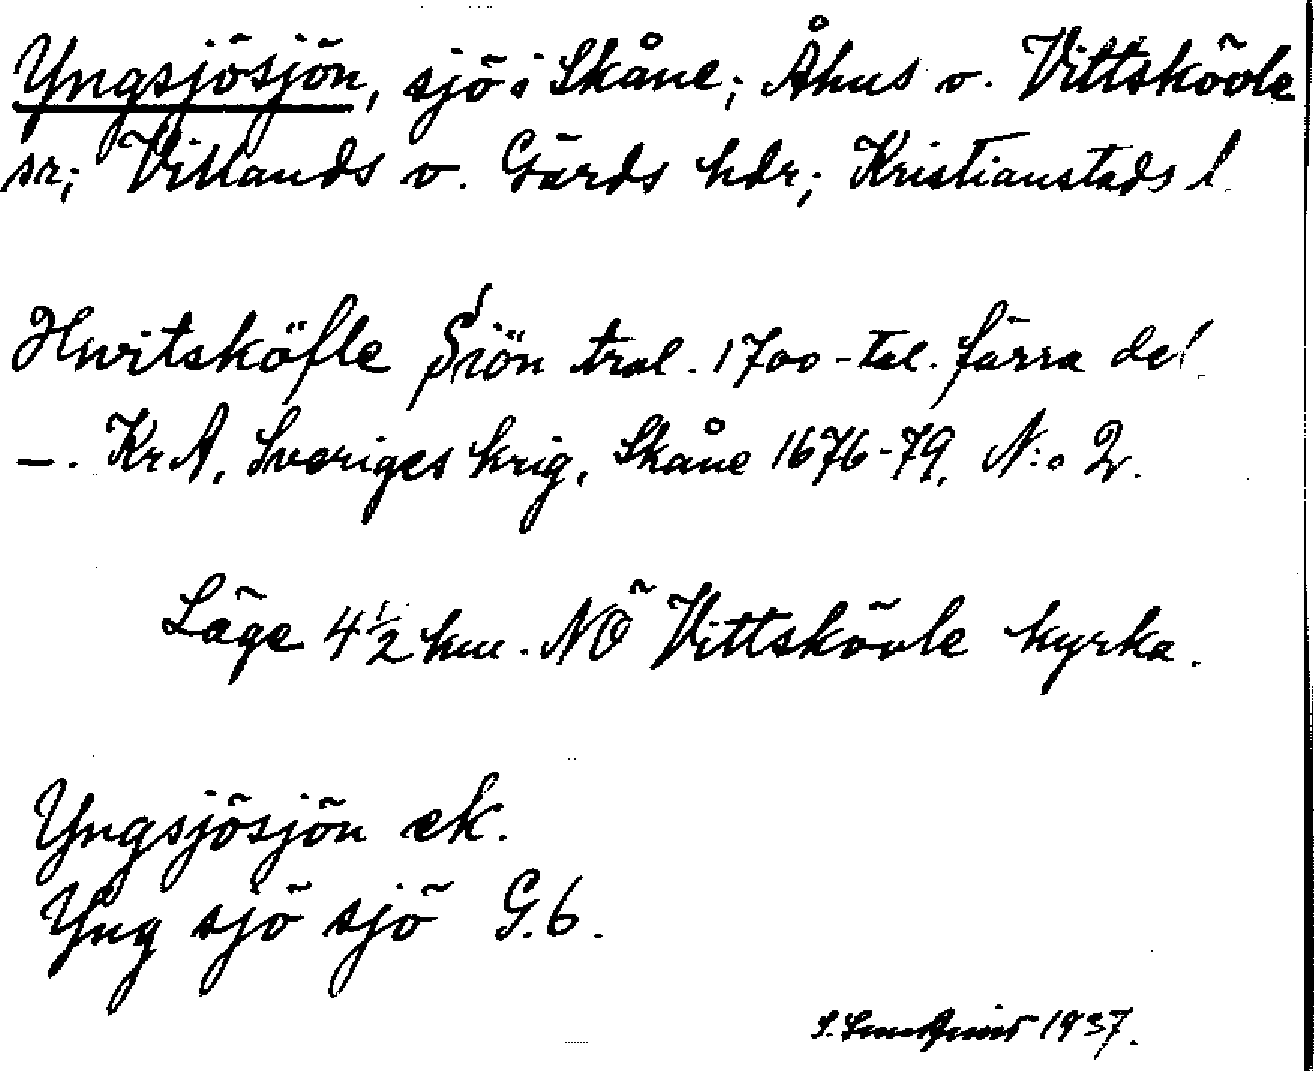 Yngsjösjön, sjö i Skåne; Åhus o. Vittskövle
sr; Villands o. Gärds hdr; Kristianstads l.
Hwitsköfle Siön trol. 1700-tal. förra del
—. KrA, Sveriges krig, Skåne 1676-79, N:o 2.
Läge 4½ km. NÖ Vittskövle kyrka.
Yngsjösjön ek.
Yng sjö sjö G.6.
1937.